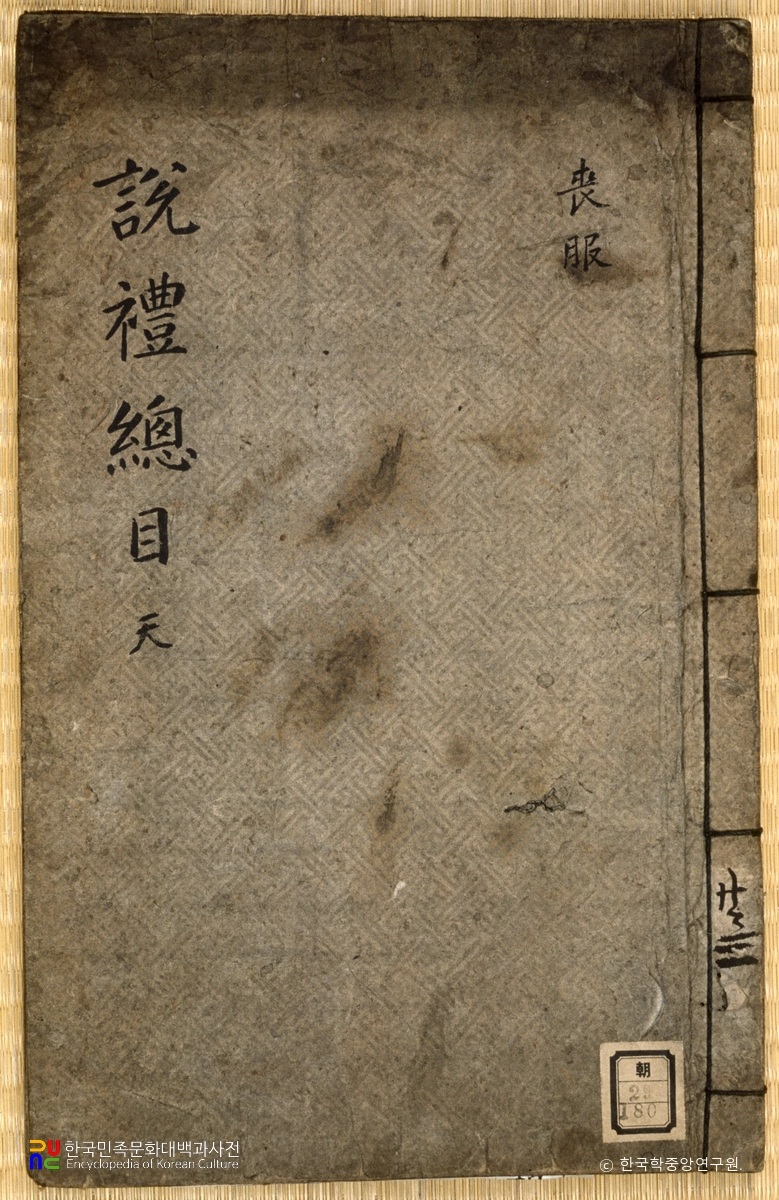 喪服
說禮總目 天
共三
朝
180
한국민족문화대백과사전
Encyclopedia of Korean Culture
© 한국학중앙연구원